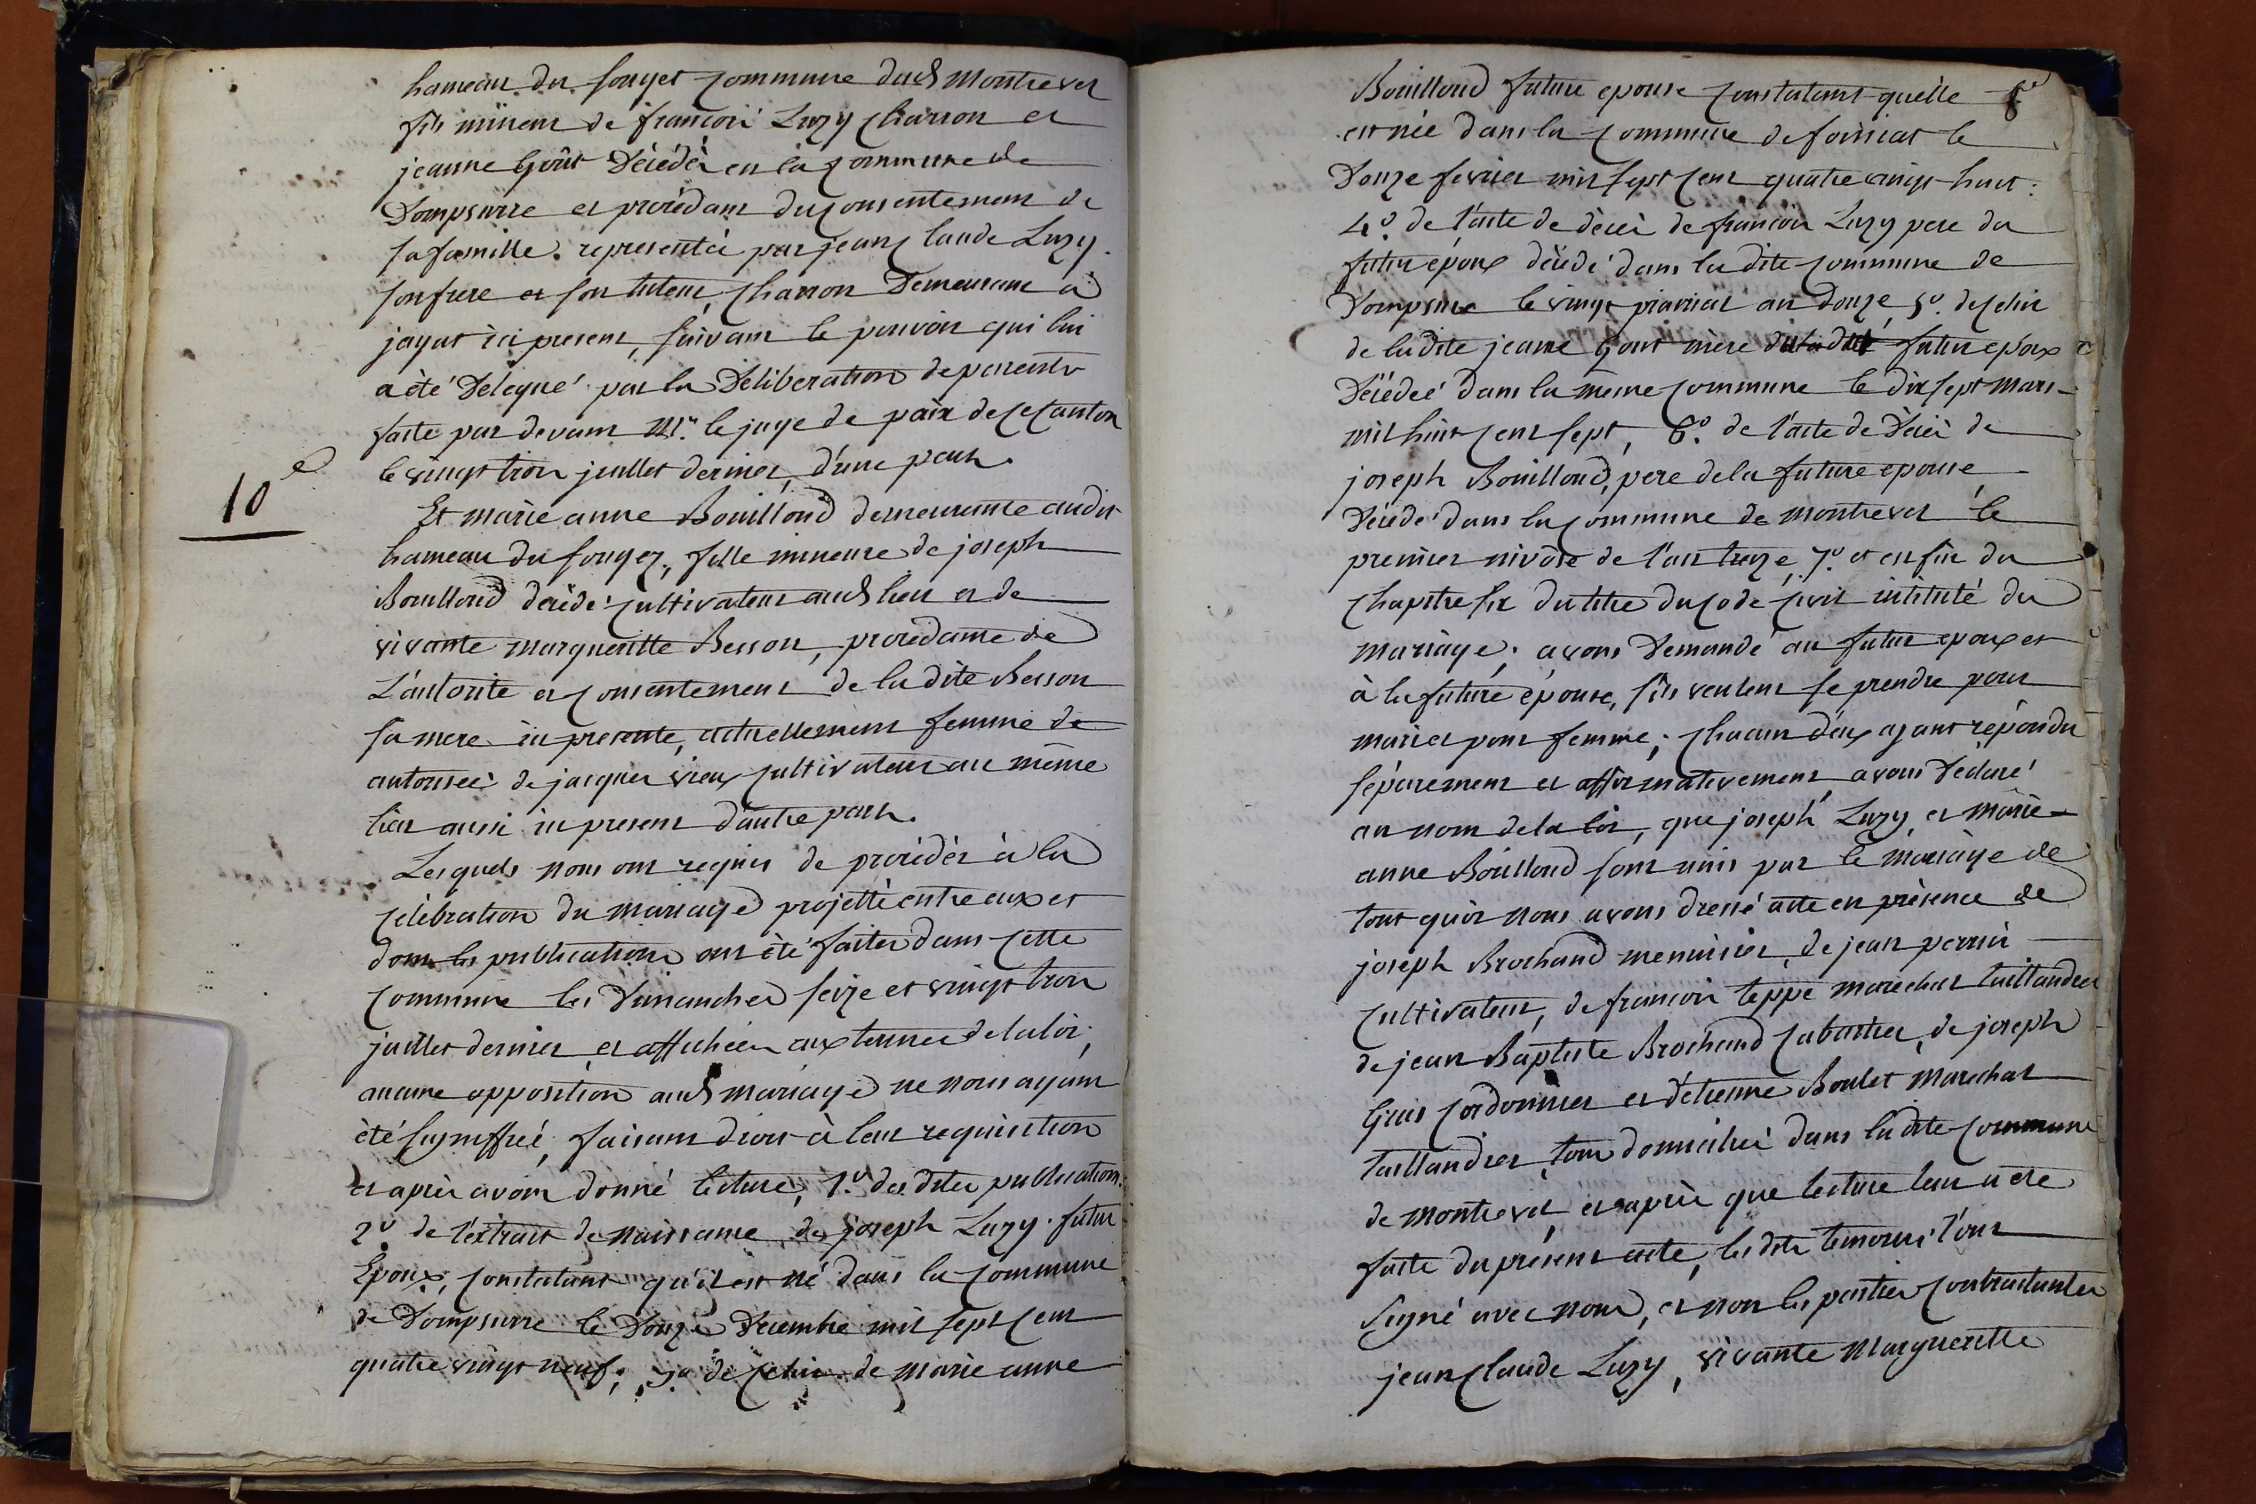 hameau du fouget commune dud. Montrevel
fils mineur de françois Luzy charron et
jeanne Goût décédés en la commune de
Dompsurre et procédant du consentement de
sa famille representée par jean claude Luzy
son frere et son tuteur, charron demeurant à
jayat ici present, suivant le pouvoir qui lui
a été délégué par la Déliberation de parents
faite par devant Mr. le juge de paix de ce canton
le vingt trois juillet dernier, d'une part.
10e
Et marie anne Bouilloud demeurante audit
hameau du fouget, fille mineure de joseph
Bouilloud décédé cultivateur aud. lieu et de
vivante margueritte Besson, procédante de
L'autorité et consentement de la dite Besson
sa mere ici presente, actuellement femme de
autorisée de jacques vieux cultivateur au même
lieu aussi ici present d'autre part.
Lesquels nous ont requis de procéder à la
célébration du mariage projetté entre eux et
dont les publications ont été faites dans cette
commune les Dimanches seize et vingt trois
juillet dernier et affichées aux termes de la loi,
aucune opposition aud. mariage ne nous ayant
été signiffiée, faisant droit à leur requisition
et après avoir donné lecture, 1.° des dites publications.
2.° de l'extrait de naissance de joseph Luzy futur
Epoux, constatant qu'il est né dans la commune
de Dompsurre le Douze Décembre mil sept cent
quatre vingt neuf; 3.° de celui de marie anne
8e
Bouilloud future epouse constatant quelle
est née dans la commune de foissiat le
Douze fevrier mil sept cent quatre vingt huit.
4.° de l'acte de décès de françois Luzy pere du
futur époux décédé dans la dite commune de
Dompsure le vingt prairial an douze, 5.° de celui
de la dite jeanne Gout mère futur epoux
Décédée dans la même commune le dix sept mars
mil huit cent sept, 6.° de l'acte de Décès de
joseph Bouilloud, pere de la future epouse
Décédé dans la commune de montrevel le
premier nivôse de l'an treize, 7.° et enfin du
chapitre six du titre du code civil intitulé du
mariage; avons Demandé au futur epoux et
à la future épouse, s'ils veulent se prendre pour
mari et pour femme; chacun d'eux ayant répondu
séparement et affirmativement, avons Déclaré
au nom de la loi, que joseph Luzy et marie
anne Boulloud sont unis par le mariage de
tout quoi nous avons dressé acte en présence de
joseph Brochand menuisier, de jean perrin
cultivateur, de françois teppe marechal taillandier
de jean Baptiste Brochand cabartier, de joseph
Guis cordonnier et d'etienne Boulet marechal
taillandier, tous domiciliés dans la dite commune
de montrevel, et après que lecture leur a été
faite du présent acte, les dits temoins l'ont
signé avec nous, et non les parties contractantes
jean claude Luzy, vivante Margueritte